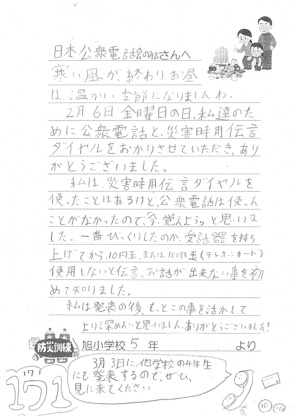 日本公衆電話会の私さんへ
寒い風が終わりお昼
は温かい季節になりましたね。
2月6日金曜日の日、私達のた
めに公衆電話と、災害時用伝言
ダイヤルをおかりさせていただき、あり
がとうございました。
私は、災害時用伝言ダイヤルを
使ったことはあるけど、公衆電話は使った
ことがなかったので、今、覚えようと思いま
した。一番びっくりしたのが、受話器を持ち
上げてから、10円玉、または100円玉(テレホンカード)
使用しないと伝言、お話が出来ない事を初
めて知りました。
私は発表の後、もっとこの事を活かして
より深めたいと思いました。ありがとうございました!
防災訓練
旭小学校5年 より
171
3月3日に、他学校の4年生
にも発表するので、ぜひ、
見に来てください
10